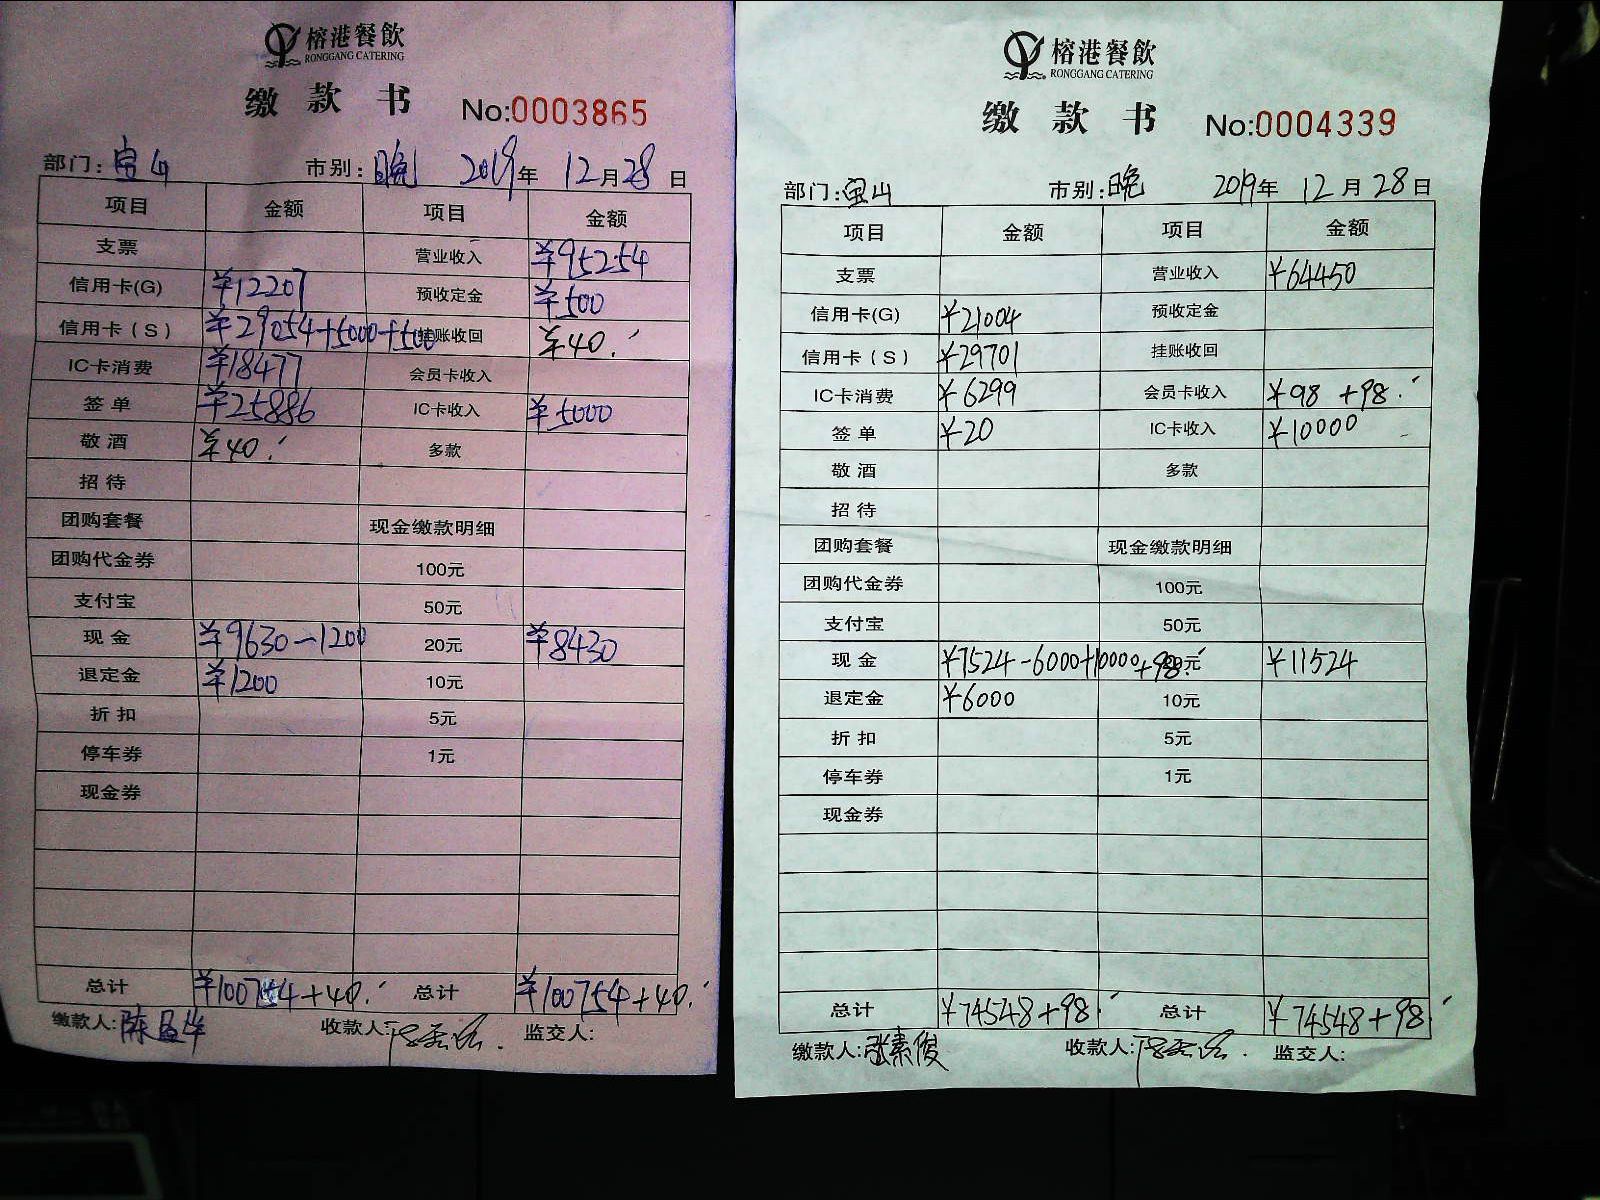 榕港餐飲
RONGGANG CATERING
缴款书 No:0003865
部门: 宝山 市别: 晚 2019年 12月28日
项目 金额 项目 金额
支票 营业收入 ¥95254
信用卡(G) ¥12207 预收定金 ¥500
信用卡(S) ¥29054+5000+500 挂账收回 ¥40.
IC卡消费 ¥18477 会员卡收入
签单 ¥25886 IC卡收入 ¥5000
敬酒 ¥40. 多款
招待
团购套餐 现金缴款明细
团购代金券 100元
支付宝 50元
现金 ¥9630-1200 20元 ¥8430
退定金 ¥1200 10元
折扣 5元
停车券 1元
现金券
总计 ¥100754+40. 总计 ¥100754+40.
缴款人: 收款人: 监交人:
榕港餐飲
RONGGANG CATERING
缴款书 No:0004339
部门: 宝山 市别: 晚 2019年 12月28日
项目 金额 项目 金额
支票 营业收入 ¥64450
信用卡(G) ¥21004 预收定金
信用卡(S) ¥29701 挂账收回
IC卡消费 ¥6299 会员卡收入 ¥98 +98.
签单 ¥20 IC卡收入 ¥10000
敬酒 多款
招待
团购套餐 现金缴款明细
团购代金券 100元
支付宝 50元
现金 ¥7524-6000+10000+98. 元 ¥11524
退定金 ¥6000 10元
折扣 5元
停车券 1元
现金券
总计 ¥74548+98. 总计 ¥74548+98.
缴款人: 张素俊 收款人: 监交人: